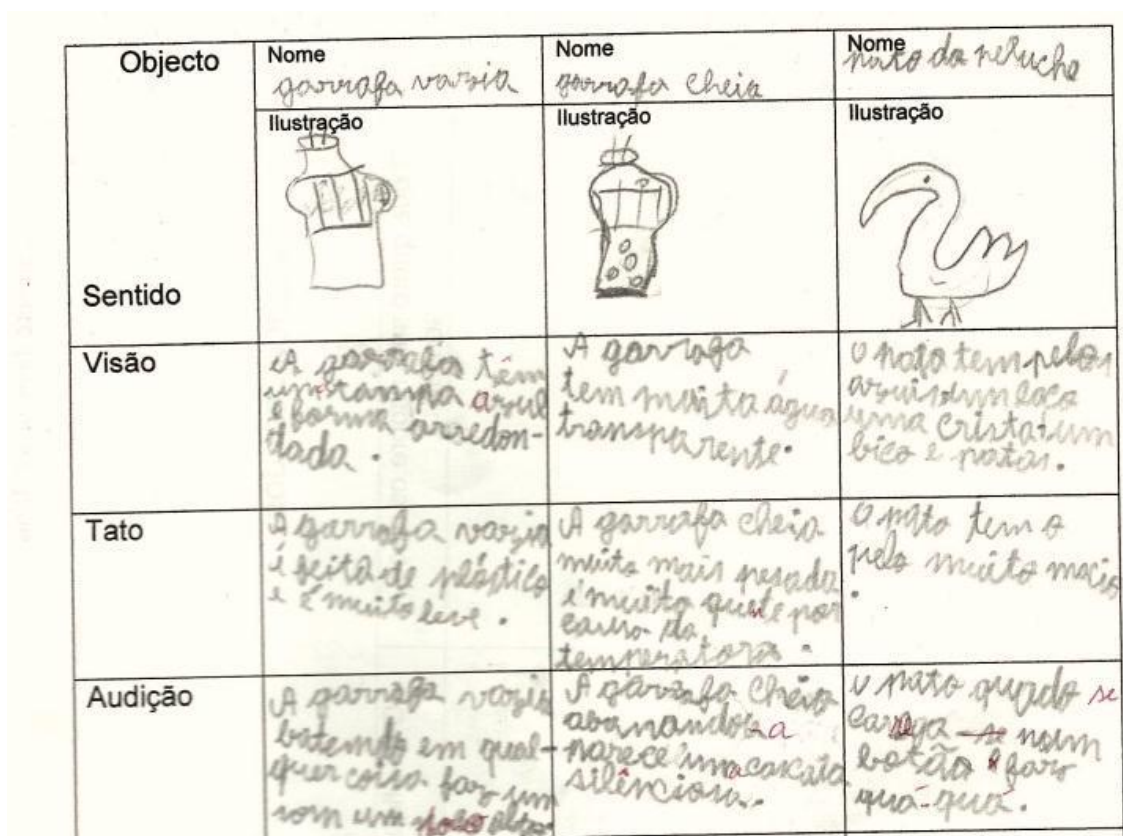 Objecto
Sentido
Nome
garrafa vazia
Nome
garrafa cheia
Nome
pato de peluche
Ilustração
Ilustração
Ilustração
Visão
A garrafa têm
uma tampa azul
e forma arredon-
dada.
A garrafa
tem muita água
transparente.
O pato tem pelos
azuis um
uma crista um
bico e patas.
Tato
A garrafa vazia
é feita de plástico
e é muito leve.
A garrafa cheia
muito mais pesada
é muito quente por
causa da
temperatora.
O pato tem o
pelo muito macio
.
Audição
A garrafa vazia
batendo em qual-
quer coisa faz um
som um poco alto
A garrafa cheia
abanandoa a
parece uma cascata
silênciosa.
O pato quado se
carrega se num
botão faz
quá-quá.